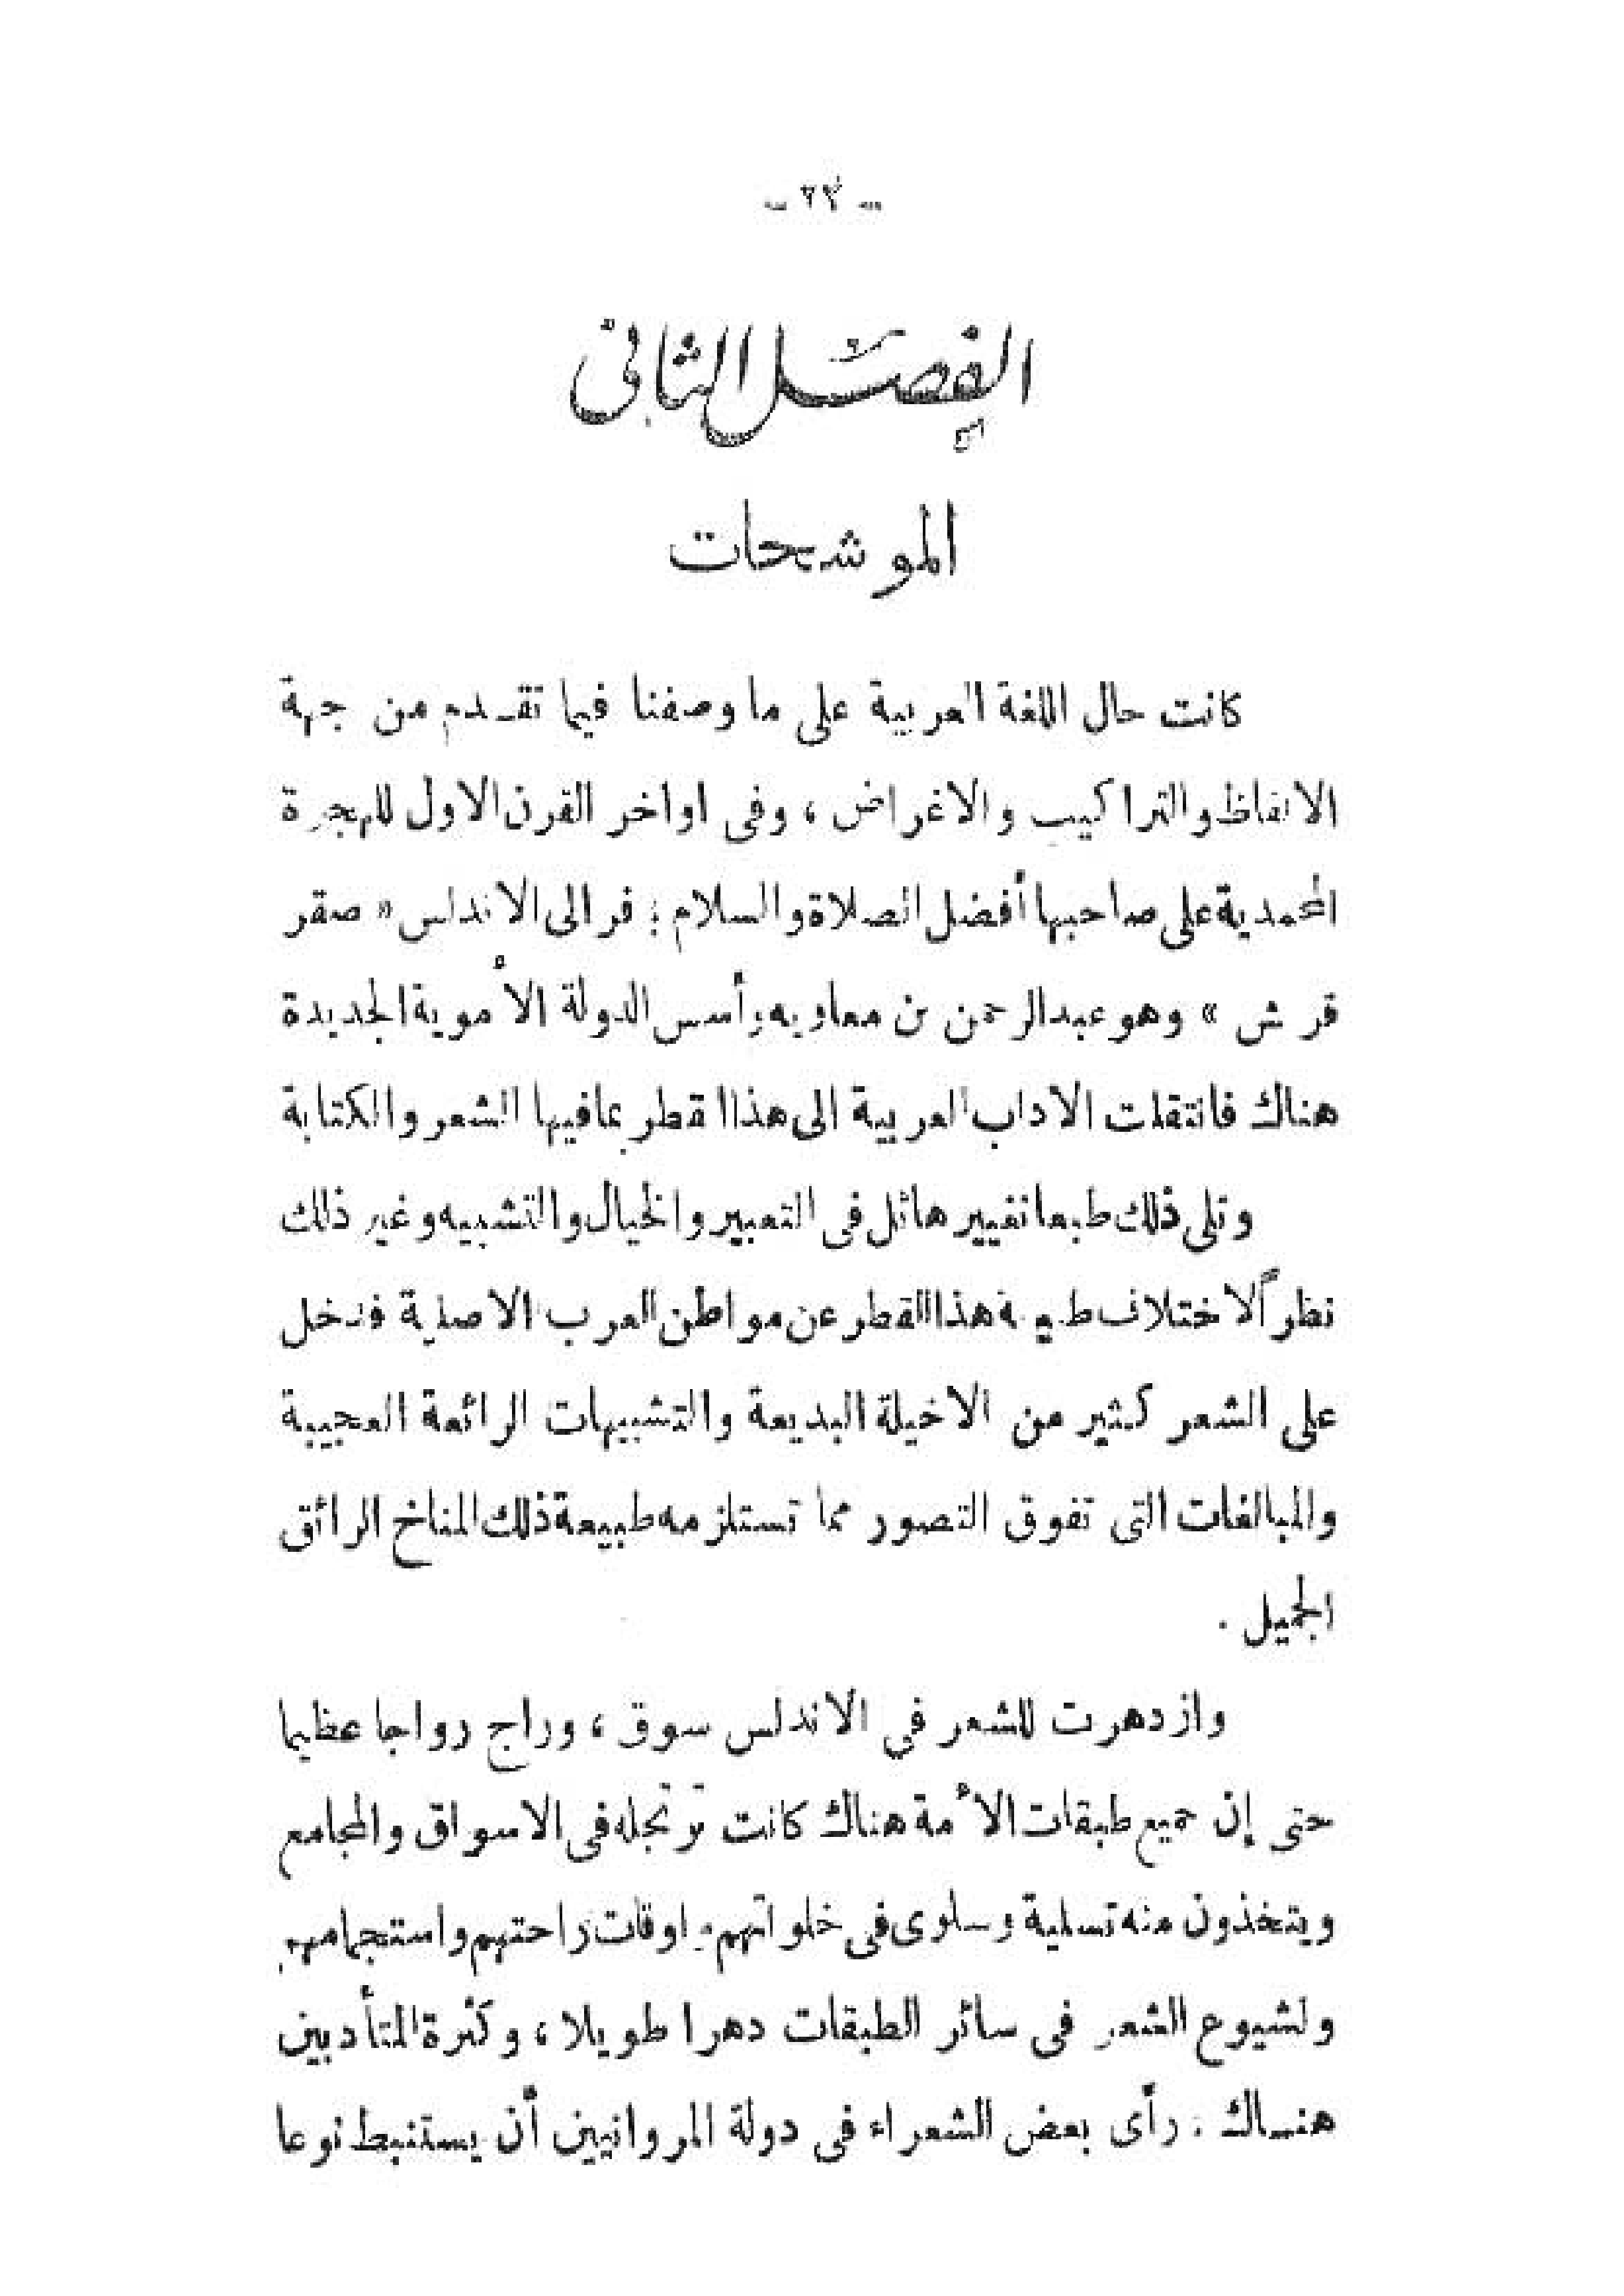 - ٢٣ -
الفصل الثاني
الموشحات
كانت حال اللغة العربية على ما وصفنا فيما تقدم من جهة
الالفاظ والتراكيب والاغراض ، وفى اواخر القرن الاول للهجرة
المحمدية على صاحبها أفضل الصلاة والسلام ؛ فر الى الاندلس « صقر
قريش » وهو عبد الرحمن بن معاويه وأسس الدولة الأموية الجديدة
هناك فانتقلت الاداب العربية الى هذا القطر بما فيها الشعر والكتابة
وتلى ذلك طبعا تغيير هائل فى التعبير والخيال والتشبيه وغير ذلك
نظراً لاختلاف طبيعة هذا القطر عن مواطن العرب الاصلية فدخل
على الشعر كثير من الاخيلة البديعة والتشبيهات الرائعة العجيبة
والمبالغات التى تفوق التصور مما تستلزمه طبيعة ذلك المناخ الرائق
الجميل .
وازدهرت للشعر فى الاندلس سوق ، وراج رواجا عظيما
حتى إن جميع طبقات الأمة هناك كانت ترتجله فى الاسواق والمجامع
ويتخذون منه تسلية وسلوى فى خلواتهم واوقات راحتهم واستجمامهم
ولشيوع الشعر فى سائر الطبقات دهرا طويلا ، وكثرة المتأدبين
هنـاك . رأى بعض الشعراء فى دولة المروانيين أن يستنبط نوعا